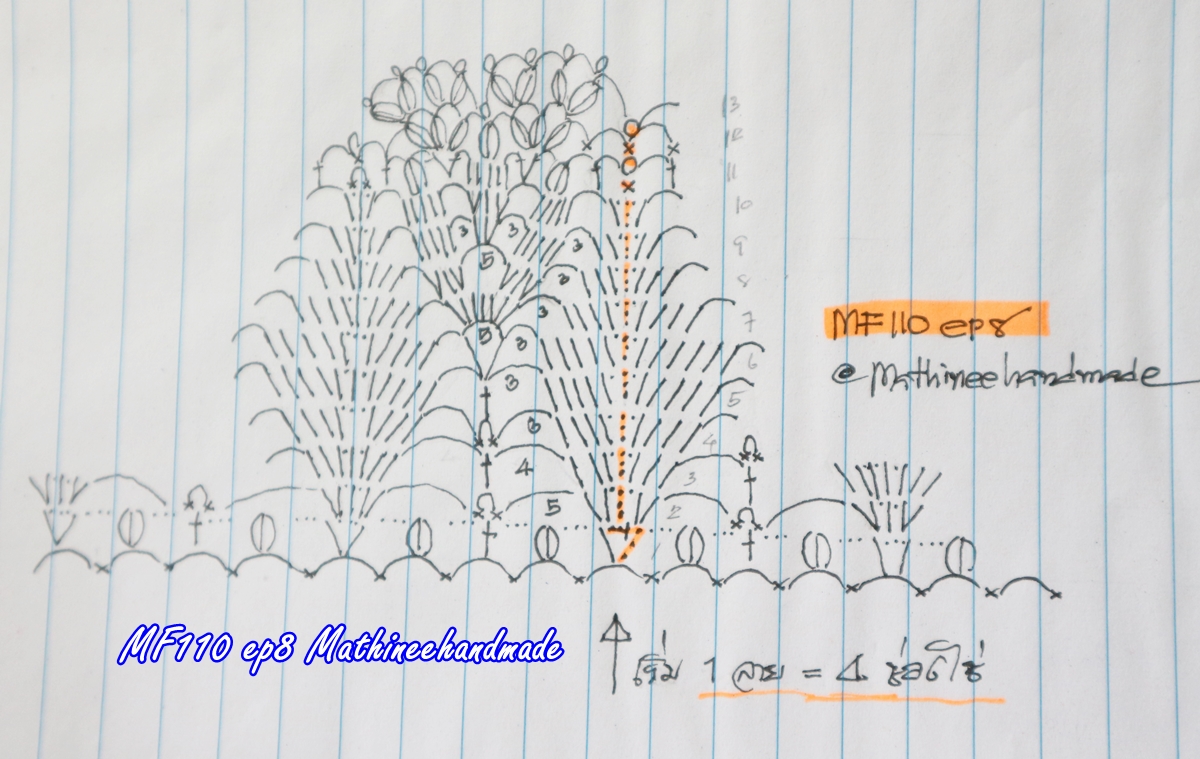 13
12
11
10
3 3 3 9
5 3 8
3 7
5 3 6
3 5
6 4
4 3
5 2
1
MF110 ep8
@Mathineehandmade
MF110 ep8 Mathineehandmade
เริ่ม 1 ลาย = 4 ช่องโซ่